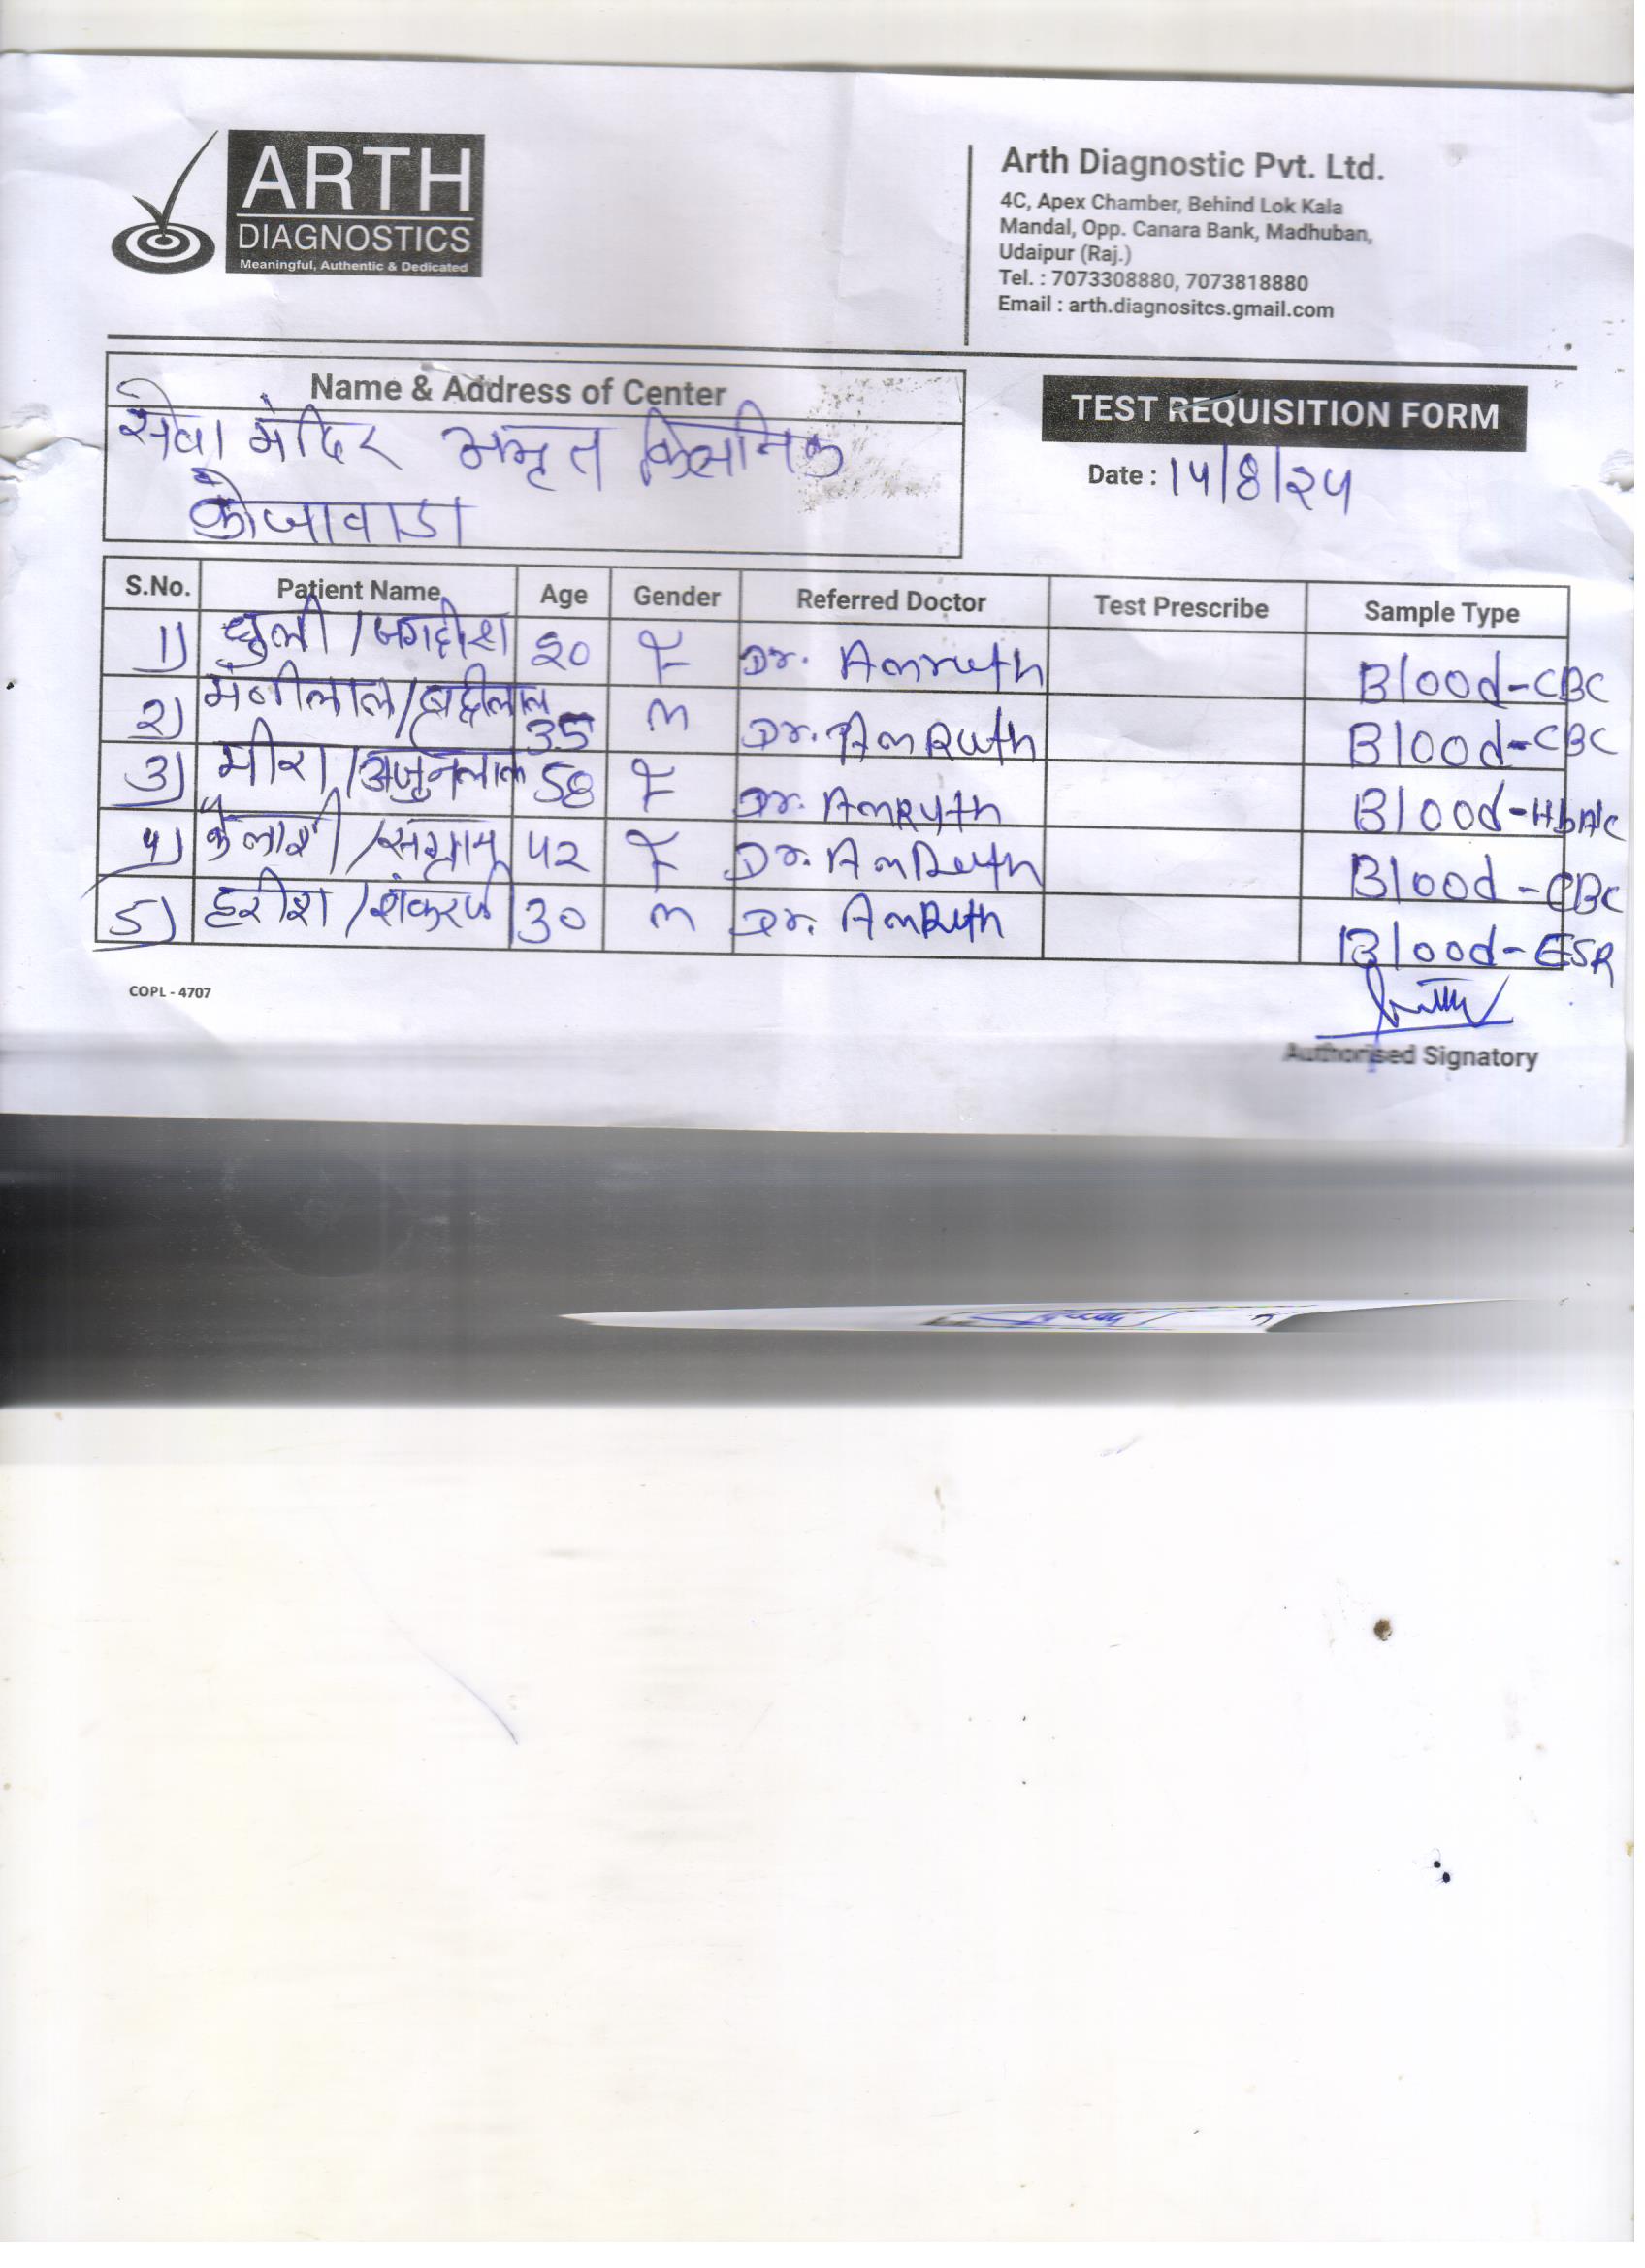 ARTH
DIAGNOSTICS
Meaningful, Authentic & Dedicated
Arth Diagnostic Pvt. Ltd.
4C, Apex Chamber, Behind Lok Kala
Mandal, Opp. Canara Bank, Madhuban,
Udaipur (Raj.)
Tel. : 7073308880, 7073818880
Email : arth.diagnositcs.gmail.com
Name & Address of Center
सेवा मंदिर अमृत किलनिक
कोजावाडा
TEST REQUISITION FORM
Date : 14/8/24
S.No. Patient Name Age Gender Referred Doctor Test Prescribe Sample Type
1) धुली/जगदीश 20 F Dr. Amruth Blood-CBC
2) मणीलाल/बद्रीलाल 35 M Dr. AmRuth Blood-CBC
3) मीरा/अर्जुनलाल 58 F Dr. AmRuth Blood-HbA1C
4) कैलाशी/संग्राम 42 F Dr. AmRuth Blood-CBC
5) हरीश/शंकरजी 30 M Dr. AmRuth Blood-ESR
COPL - 4707
Authorised Signatory